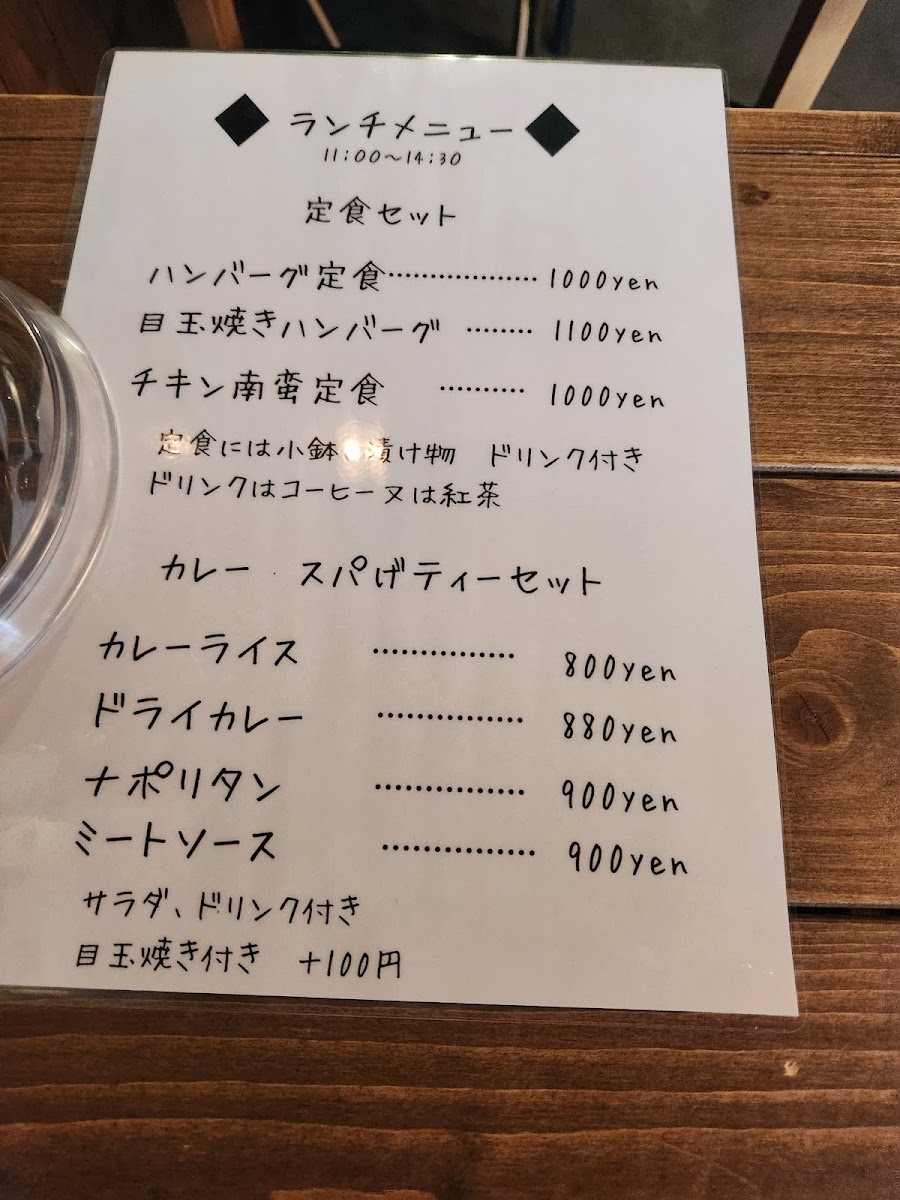 ◆ ランチメニュー ◆
11:00~14:30
定食セット
ハンバーグ定食・・・・・・・・・・・・・・・・ 1000yen
目玉焼きハンバーグ ・・・・・・・・ 1100yen
チキン南蛮定食 ・・・・・・・・・ 1000yen
定食には小鉢 漬け物 ドリンク付き
ドリンクはコーヒー又は紅茶
カレー スパげティーセット
カレーライス ・・・・・・・・・・・・・・ 800yen
ドライカレー ・・・・・・・・・・・・・・ 880yen
ナポリタン ・・・・・・・・・・・・・・ 900yen
ミートソース ・・・・・・・・・・・・・・ 900yen
サラダ、ドリンク付き
目玉焼き付き +100円